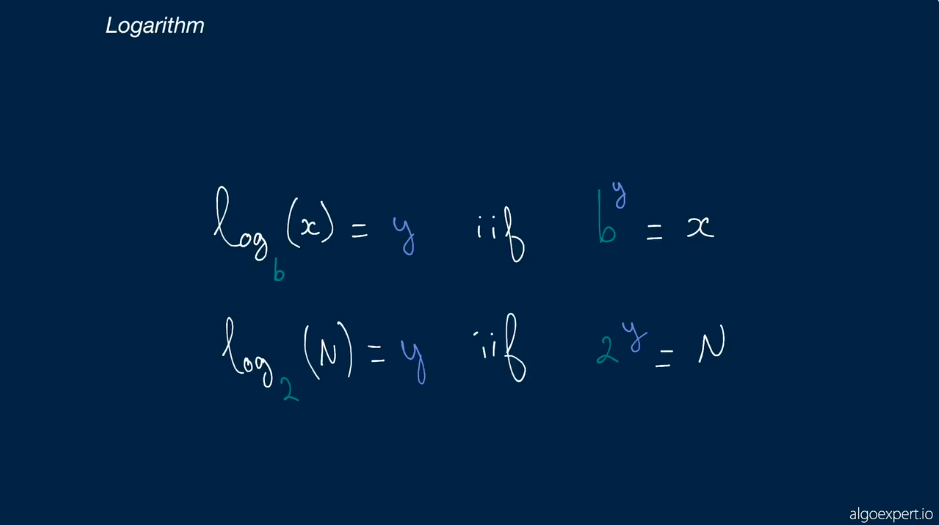 Logarithm
log_b(x) = y iif b^y = x
log_2(N) = y iif 2^y = N
algoexpert.io